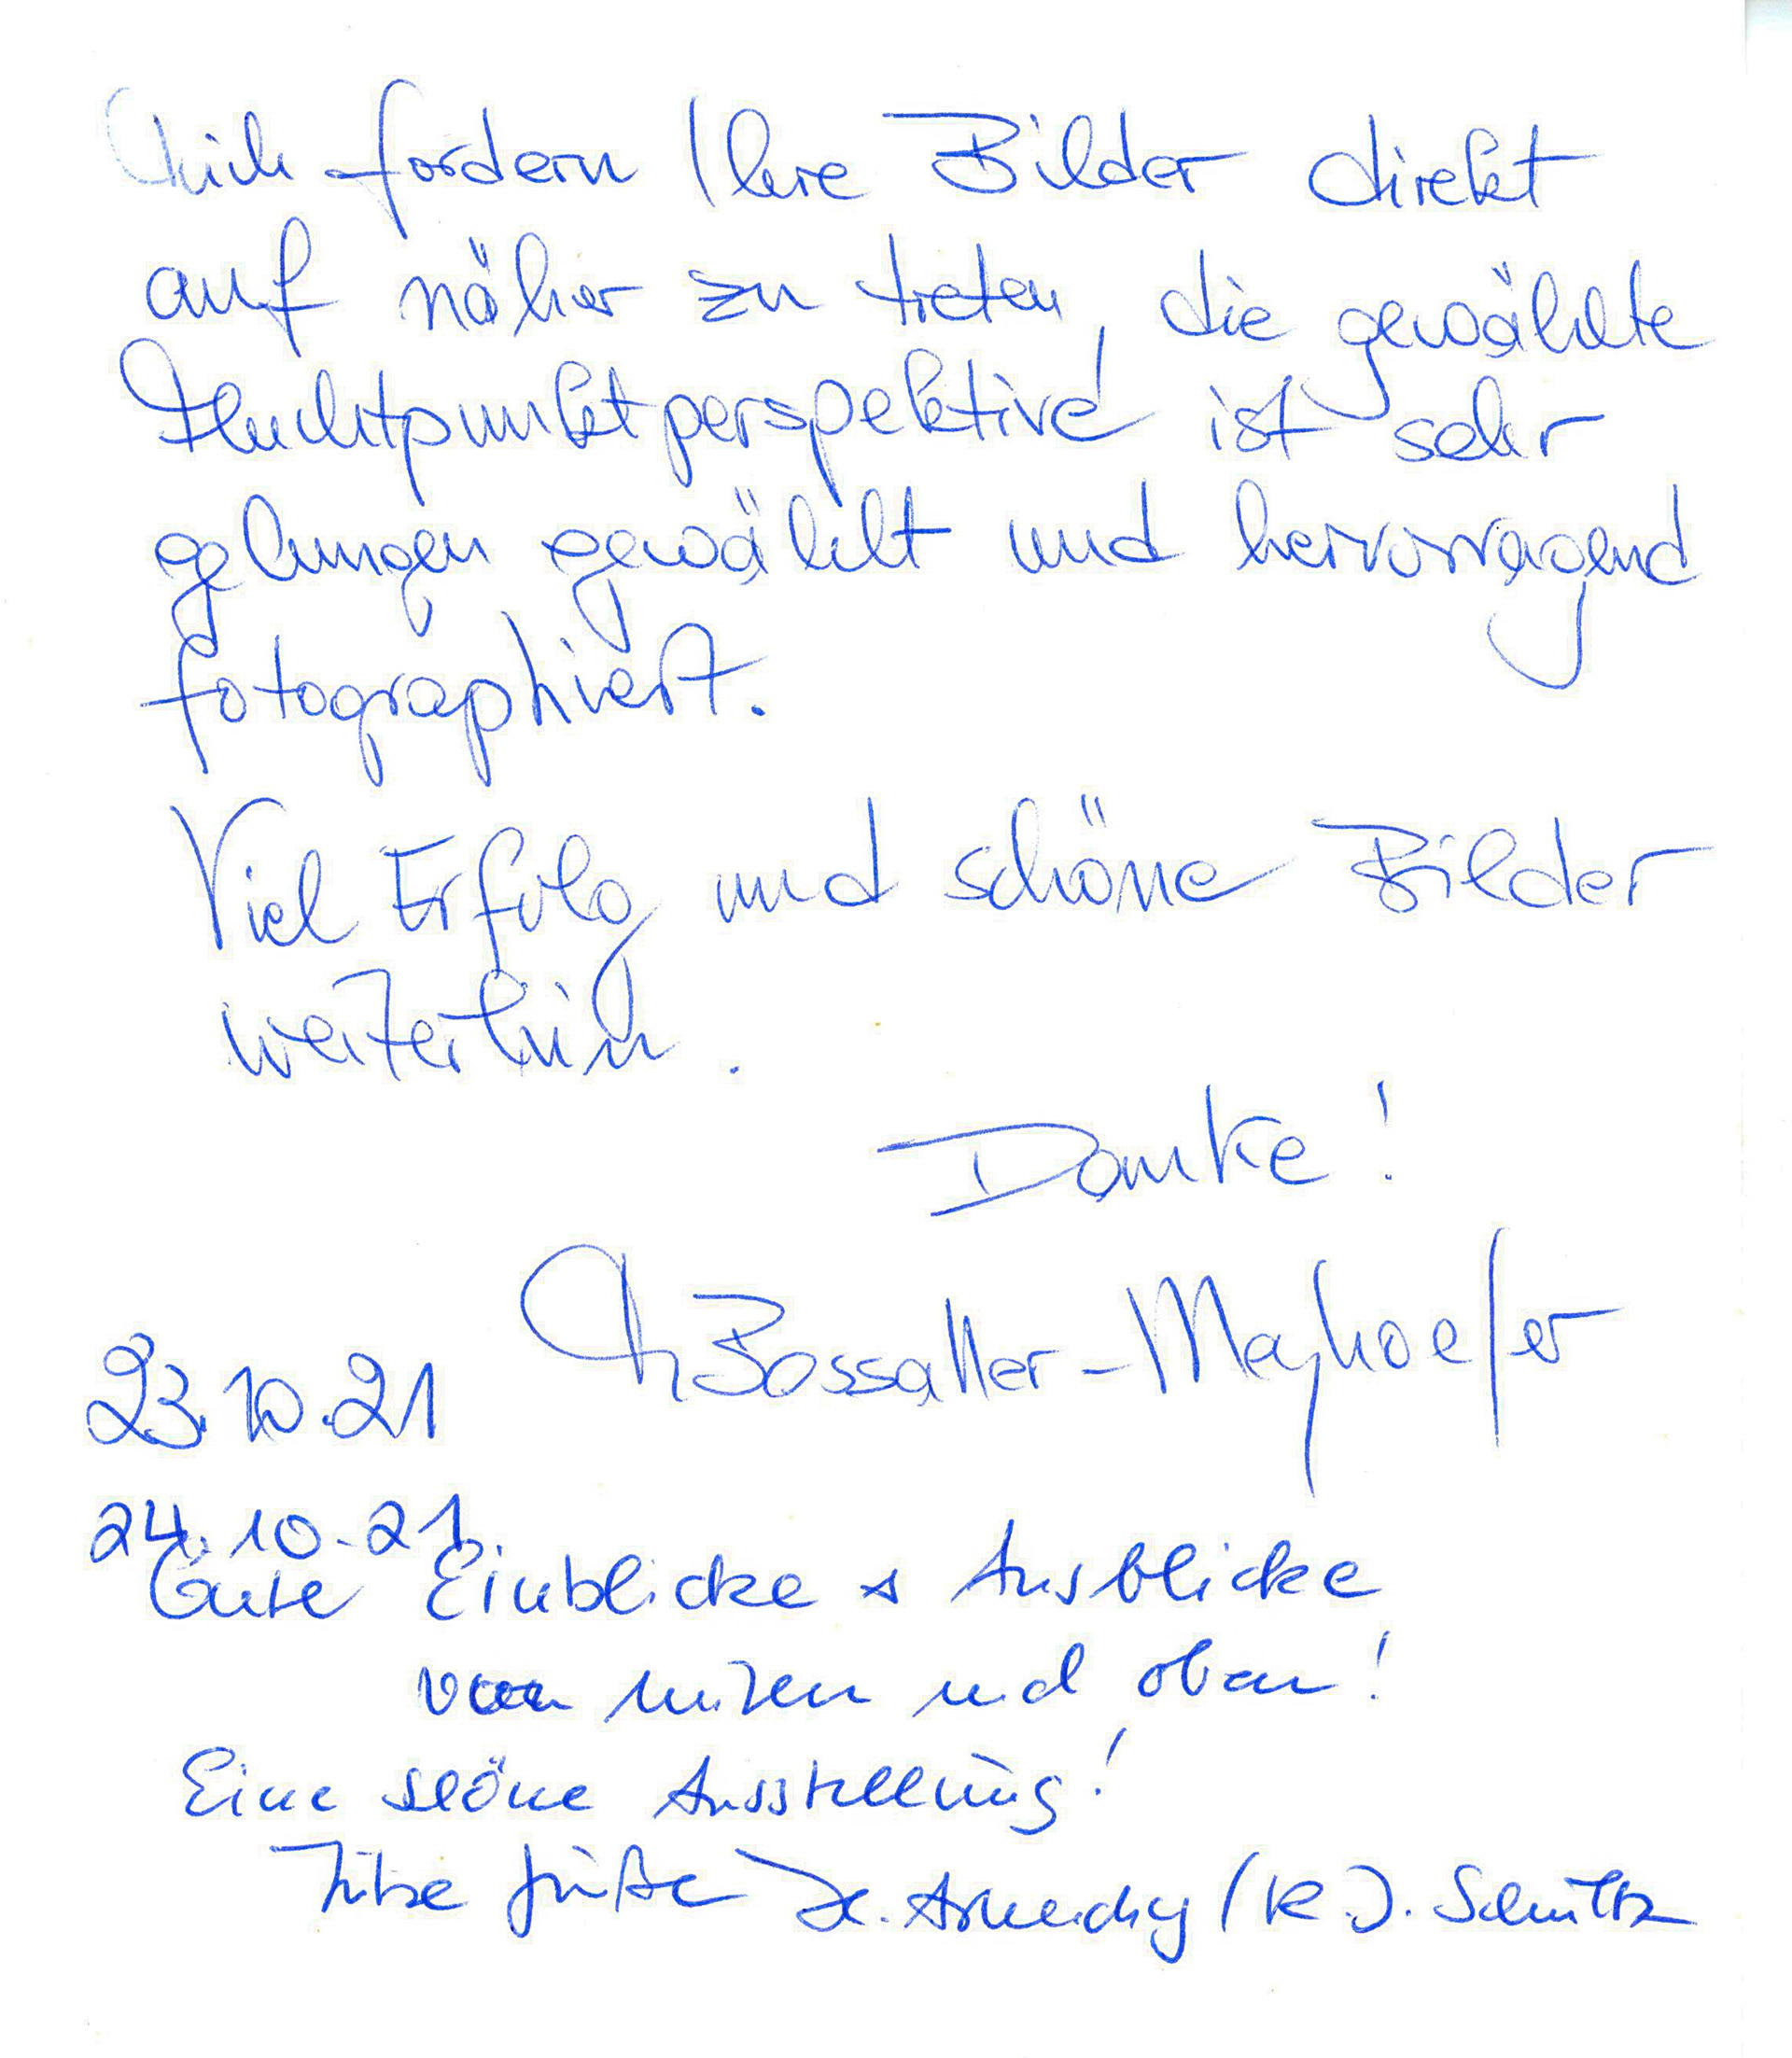 Mich fordern Ihre Bilder direkt
auf näher zu treten, die gewählte
Fluchtpunktperspektive ist sehr
gelungen gewählt und hervorragend
fotographiert.
Viel Erfolg und schöne Bilder
weiterhin.
Danke!
M Bossaller-Meyhoefer
23.10.21
24.10.21.
Gute Einblicke + Ausblicke
von unten und oben!
Eine schöne Ausstellung!
Grüße (K. J. Schultz